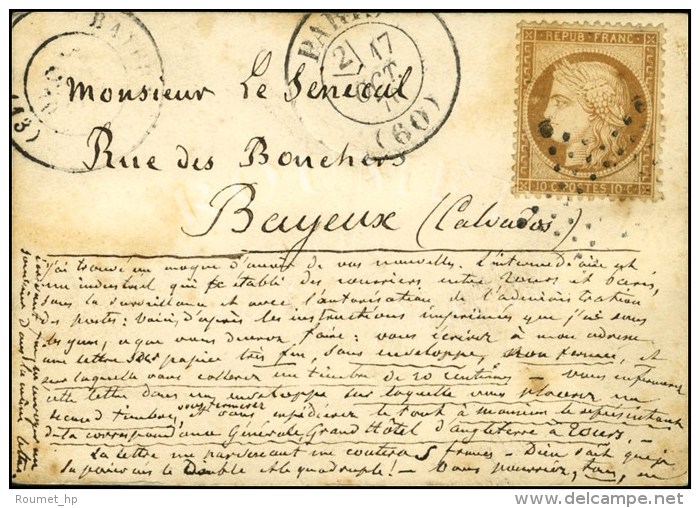 BAYEUX
(13)
PARIS
2
17
OCT.
70
(60)
REPUB. FRANC.
10 C. POSTES 10 C.
Monsieur Le Sénécal
Rue des Bouchers
Bayeux (Calvados)
J'ai trouvé un moyen d'avoir de vos nouvelles. L'intermédiaire est
un industriel qui fc établi des courriers entre Tours et Paris,
sous la surveillance et avec l'autorisation de l'administration
des postes: voici, d'après les instructions imprimées que j'ai sous
les yeux, ce que vous devrez faire: vous écrirez à mon adresse
une lettre sur papier très fin, sans enveloppe, non fermée, et
sur laquelle vous collerez un timbre de 20 centimes – vous enfermerez
cette lettre dans une enveloppe sur laquelle vous placerez un
second timbre, vous expédierez le tout à monsieur le représentant
de la correspondance Générale, Grand Hôtel d'Angleterre à Tours. –
La lettre me parvenant me coûtera 5 francs – Dieu sait que je
la paierais le Double et le quadruple! – Vous pourriez, tous, en
semaine dans la même lettre.
Roumet_hp
delcampe.net